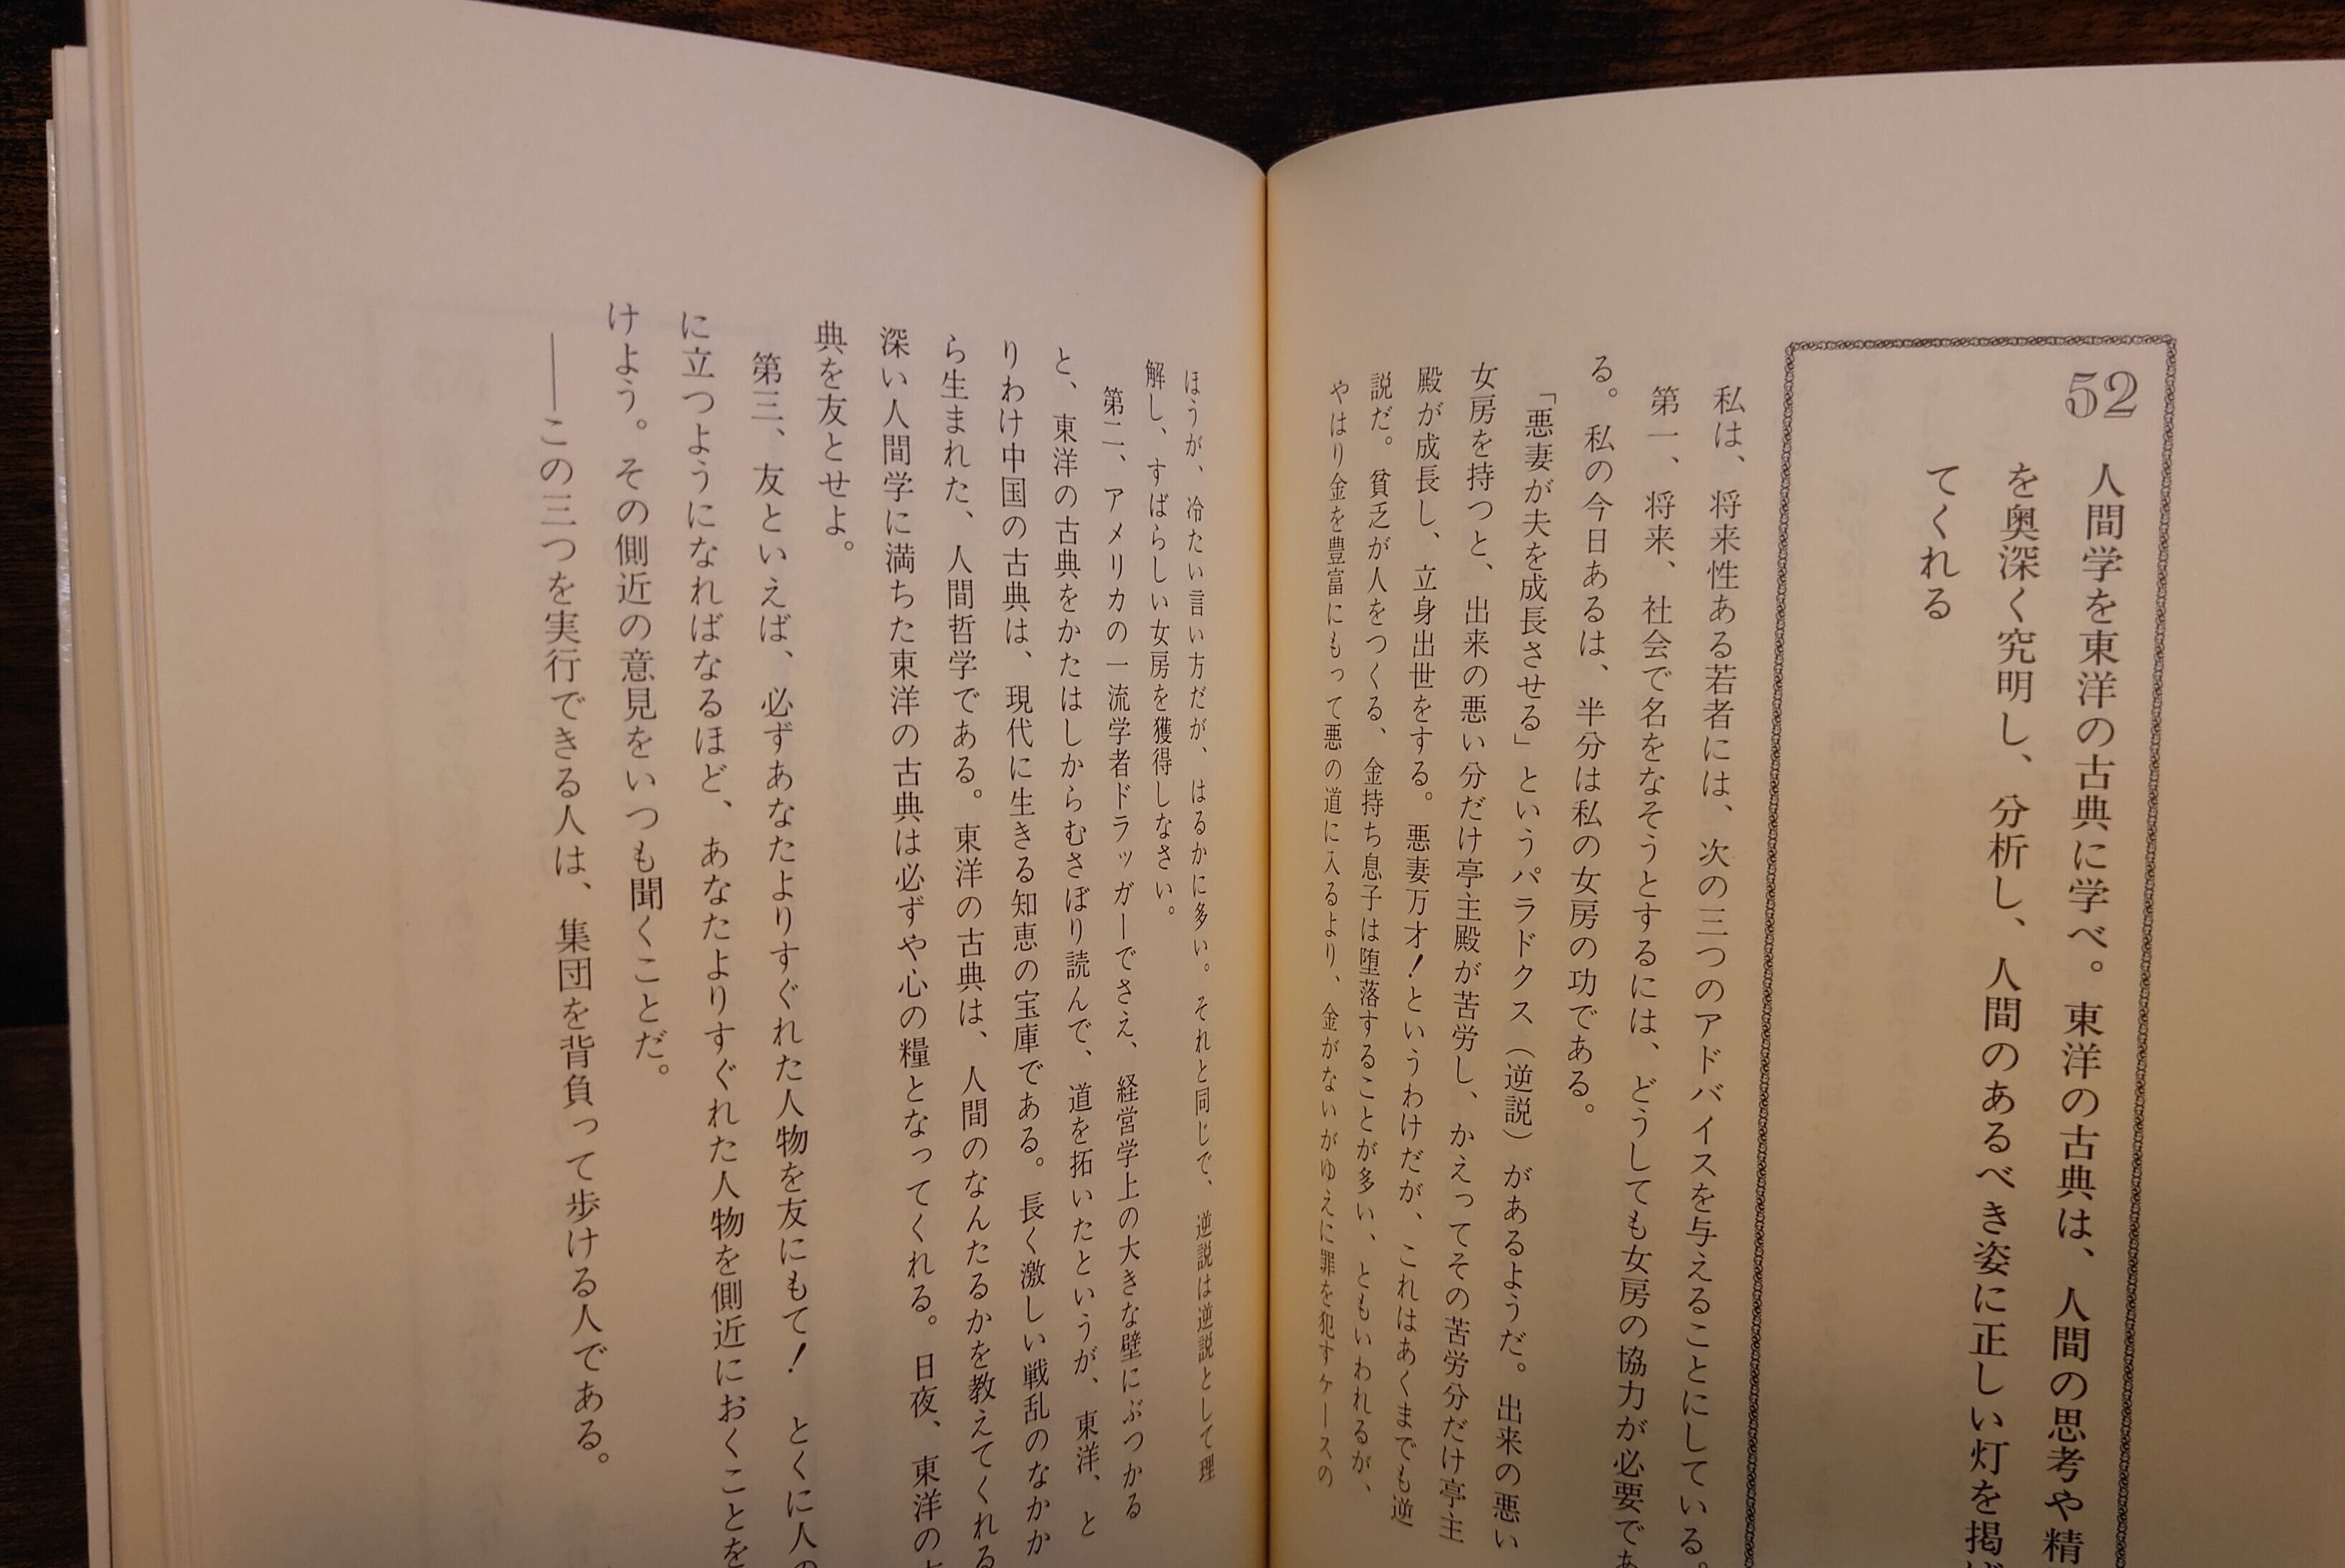 52
人間学を東洋の古典に学べ。東洋の古典は、人間の思考や精
を奥深く究明し、分析し、人間のあるべき姿に正しい灯を掲げ
てくれる
私は、将来性ある若者には、次の三つのアドバイスを与えることにしている。
第一、将来、社会で名をなそうとするには、どうしても女房の協力が必要であ
る。私の今日あるは、半分は私の女房の功である。
「悪妻が夫を成長させる」というパラドクス（逆説）があるようだ。出来の悪い
女房を持つと、出来の悪い分だけ亭主殿が苦労し、かえってその苦労分だけ亭主
殿が成長し、立身出世をする。悪妻万才！というわけだが、これはあくまでも逆
説だ。貧乏が人をつくる、金持ち息子は堕落することが多い、ともいわれるが、
やはり金を豊富にもって悪の道に入るより、金がないがゆえに罪を犯すケースの
ほうが、冷たい言い方だが、はるかに多い。それと同じで、逆説は逆説として理
解し、すばらしい女房を獲得しなさい。
第二、アメリカの一流学者ドラッガーでさえ、経営学上の大きな壁にぶつかる
と、東洋の古典をかたはしからむさぼり読んで、道を拓いたというが、東洋、と
りわけ中国の古典は、現代に生きる知恵の宝庫である。長く激しい戦乱のなかか
ら生まれた、人間哲学である。東洋の古典は、人間のなんたるかを教えてくれる
深い人間学に満ちた東洋の古典は必ずや心の糧となってくれる。日夜、東洋の
典を友とせよ。
第三、友といえば、必ずあなたよりすぐれた人物を友にもて！　とくに人の
に立つようになればなるほど、あなたよりすぐれた人物を側近におくことを
けよう。その側近の意見をいつも聞くことだ。
――この三つを実行できる人は、集団を背負って歩ける人である。